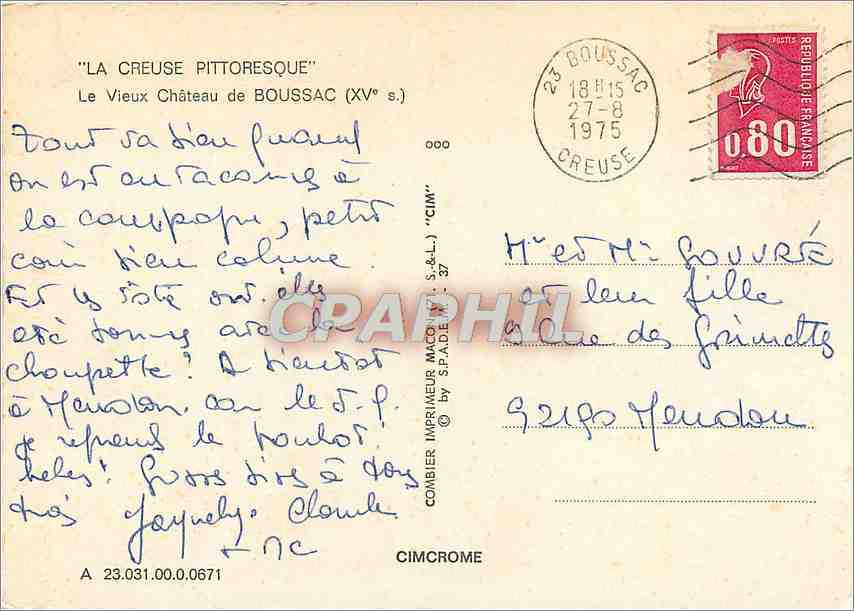 "LA CREUSE PITTORESQUE"
Le Vieux Château de BOUSSAC (XVe s.)
Tout va bien quand
on est en vacances à
la campagne, petit
coin bien calme.
Et les été ont elles
été bonnes avec la
choupette? A bientôt
à Meudon. car le
je reprends le boulot!
helas! Grosses bises à tous
trois Jacqueline Claude
+ MC
A 23.031.00.0.0671
CIMCROME
COMBIER IMPRIMEUR MACON (S.-&-L.) "CIM"
© by S.P.A.D.E.M. : 37
23 BOUSSAC
18H15
27-8
1975
CREUSE
POSTES
REPUBLIQUE FRANÇAISE
0,80
Mr et Me GOUVRIÉ
et leur fille
Rue des Grimettes
92190 Meudon
CPAPHIL